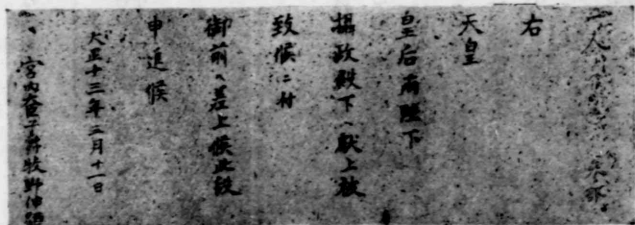 右
天皇
皇后両陛下
摂政殿下ヘ献上被
致候ニ付
御前ヘ差上候此段
申進候
大正十三年二月十一日
宮内大臣子爵牧野伸顕